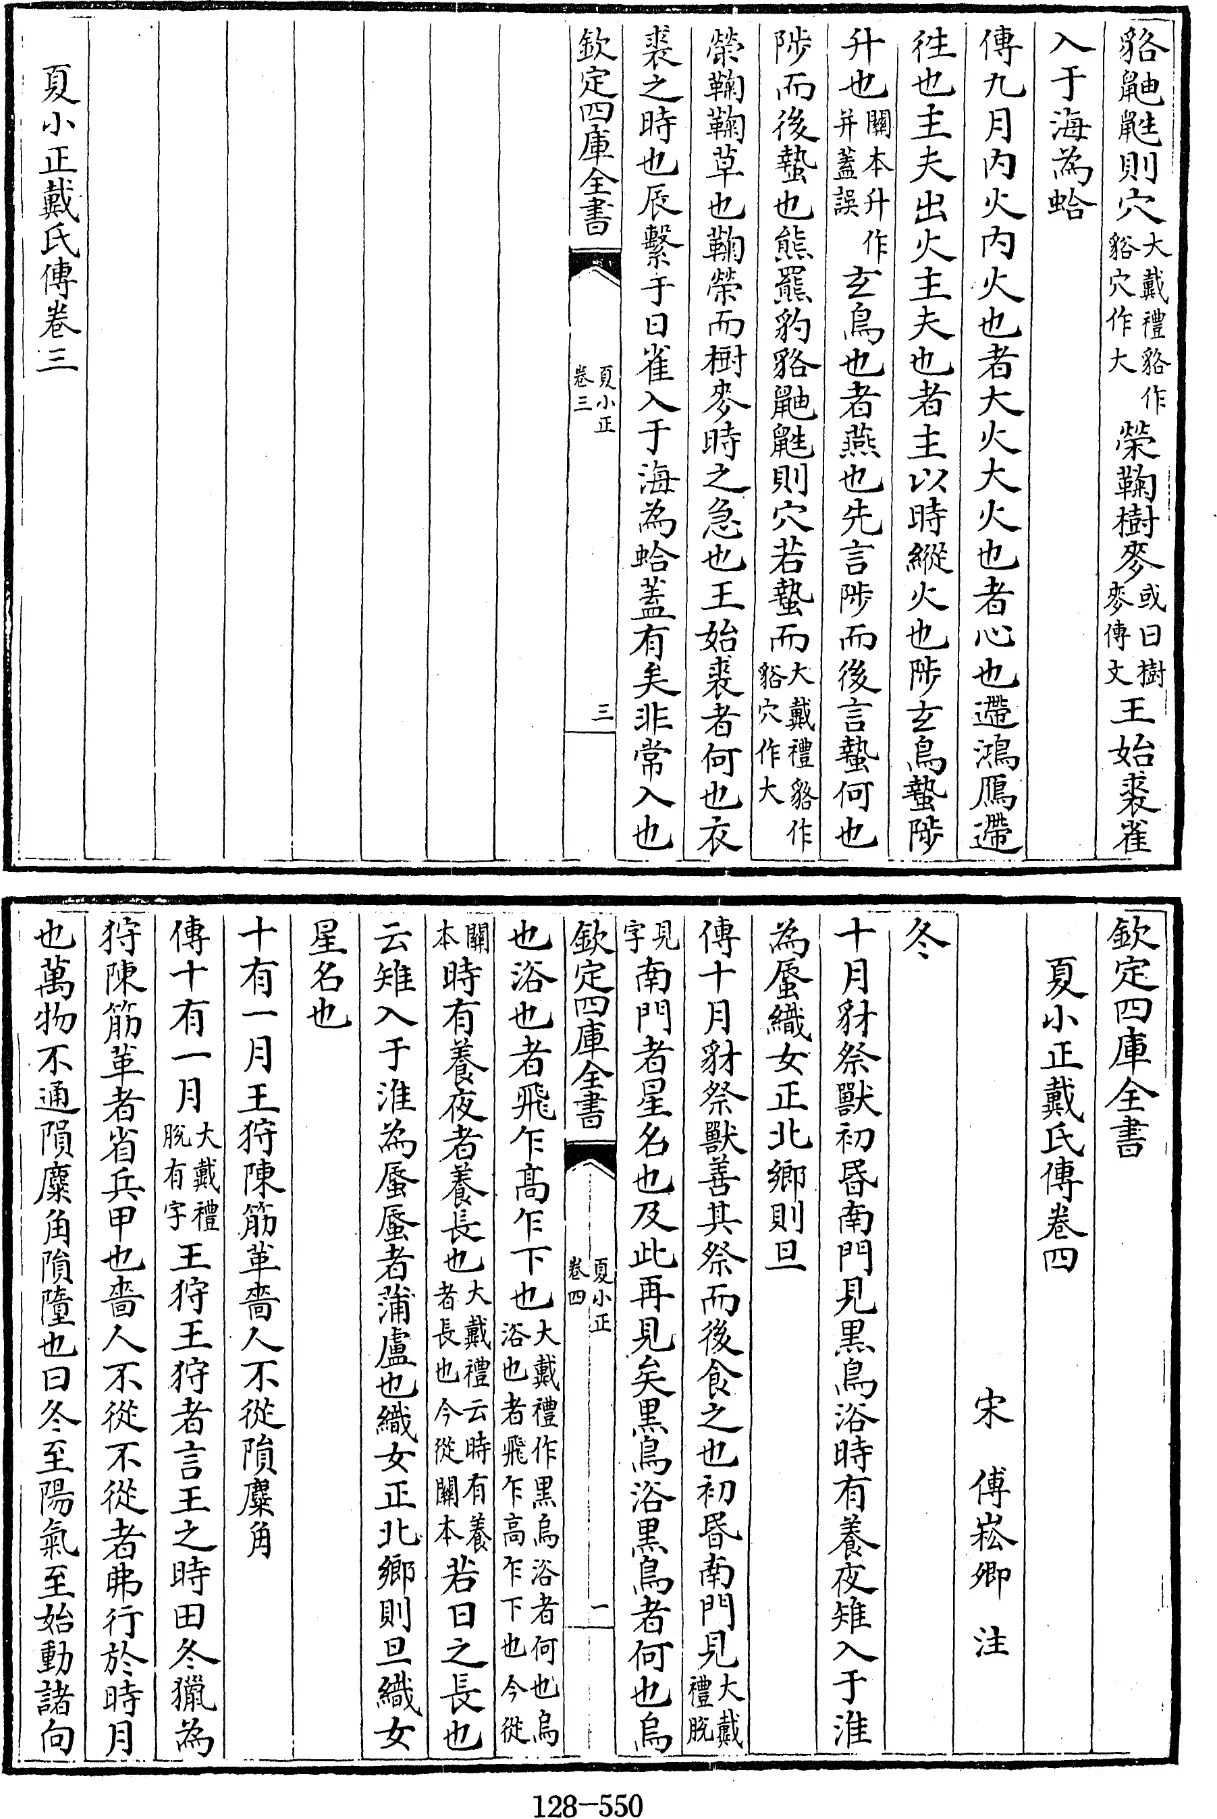 貉鼬鼪則穴大戴禮貉作貉穴作大榮鞠樹麥或曰樹麥傳文王始裘雀
入于海為蛤
傳九月内火内火也者大火大火也者心也遰鴻鴈遰
徃也主夫出火主夫也者主以時縱火也陟玄鳥蟄陟
升也關本升作并蓋誤玄鳥也者燕也先言陟而後言蟄何也
陟而後蟄也熊羆豹貉鼬鼪則穴若蟄而大戴禮貉作貉穴作大
榮鞠鞠草也鞠榮而樹麥時之急也王始裘者何也衣
裘之時也辰繫于日雀入于海為蛤蓋有矣非常入也
欽定四庫全書
夏小正
卷三
三
夏小正戴氏傳卷三
欽定四庫全書
夏小正戴氏傳卷四
宋 傅崧卿 注
冬
十月豺祭獸初昏南門見黒鳥浴時有養夜雉入于淮
為蜃織女正北鄉則旦
傳十月豺祭獸善其祭而後食之也初昏南門見大戴禮脫
見字南門者星名也及此再見矣黒鳥浴黒鳥者何也烏
欽定四庫全書
夏小正
卷四
一
也浴也者飛乍髙乍下也大戴禮作黒烏浴者何也烏浴也者飛乍高乍下也今從
關本時有養夜者養長也大戴禮云時有養者長也今從關本若日之長也
云雉入于淮為蜃蜃者蒲盧也織女正北鄉則旦織女
星名也
十有一月王狩陳筋革嗇人不從隕麋角
傳十有一月大戴禮脫有字王狩王狩者言王之時田冬獵為
狩陳筋革者省兵甲也嗇人不從不從者弗行於時月
也萬物不通隕麋角隕墮也曰冬至陽氣至始動諸向
128-550